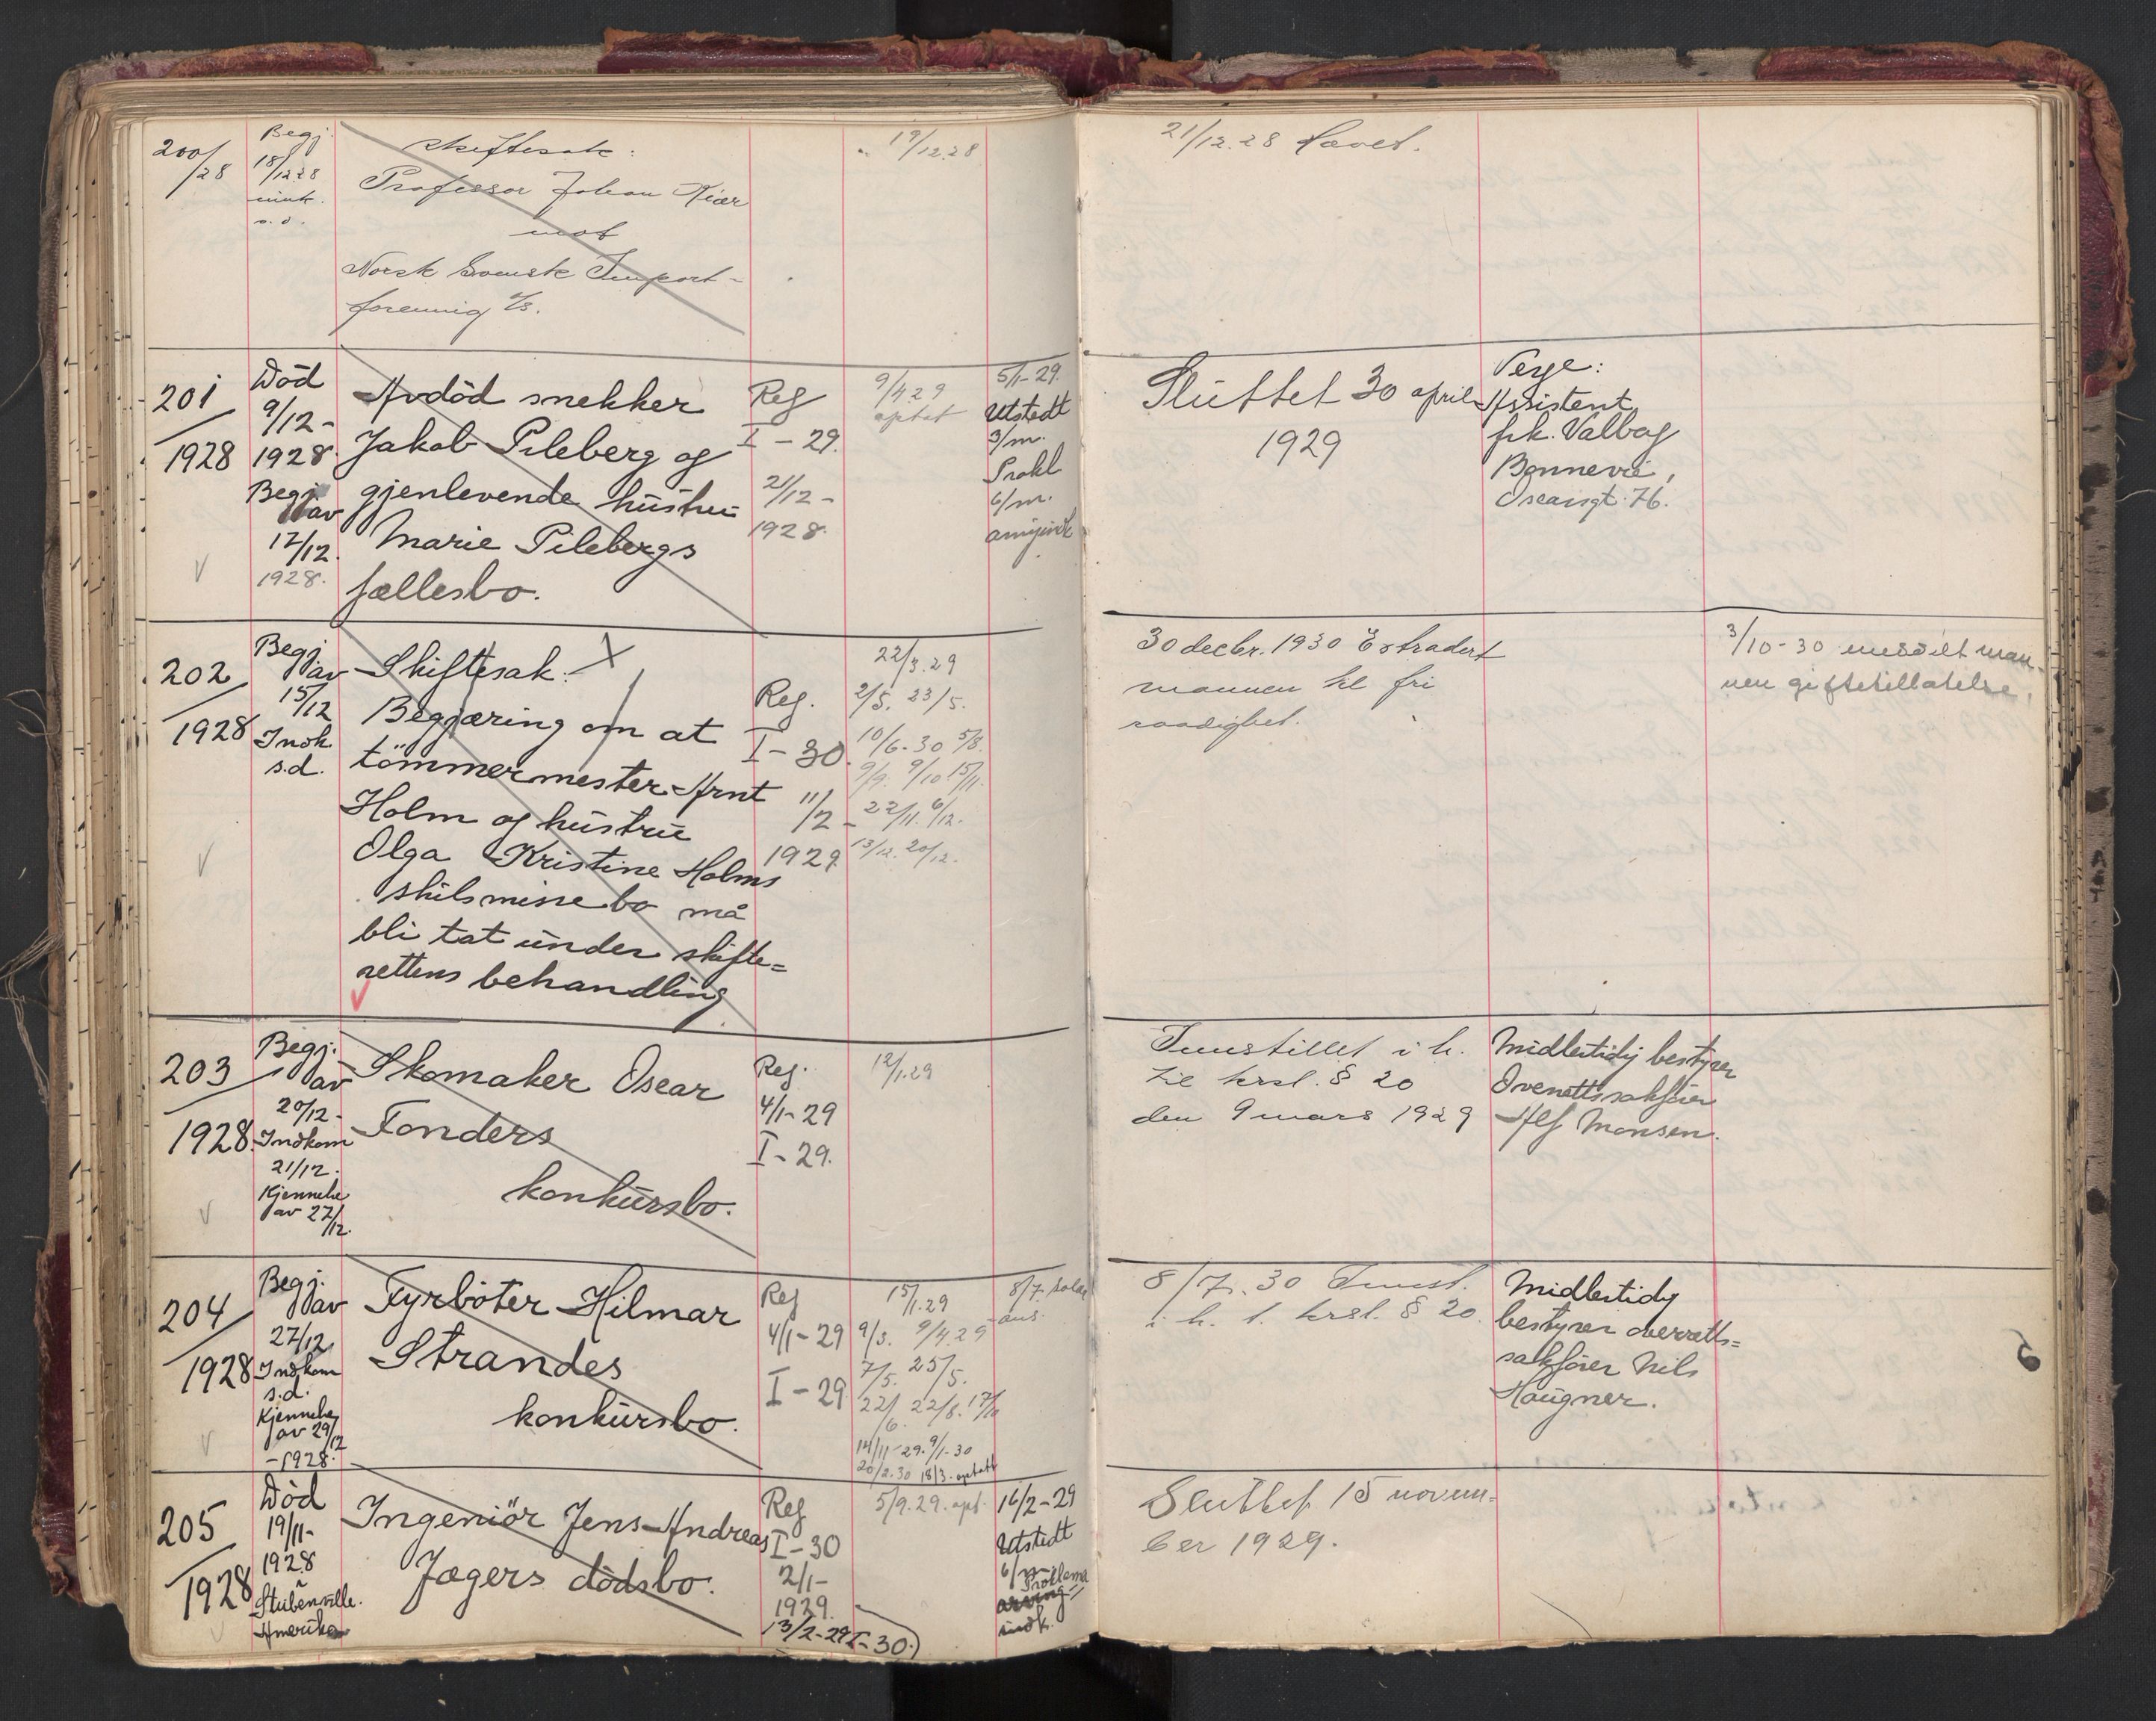 200/28
Begj.
18/12.28
innk.
s.d.
Skiftesak:
Professor Johan Kiær
mot
Norsk Svensk Import-
forening A/S.
19/12.28
21/12.28 Hævet.
201/1928
Död
9/12-
1928
Begj.
av
17/12.
1928.
Avdöd snekker
Jakob Pileberg og
gjenlevende hüstrü
Marie Pilebergs
fællesbo.
Reg
I - 29.
21/12 -
1928.
9/4 29
optat
5/1-29.
Utstedt
3/m.
Prokl
6/m.
Slüttet 30 april
1929
Verge:
Assistent
frk. Valbog
Bonnevie,
Oscarsgt. 76.
202/1928
Begj.
av
15/12
Indk.
s.d.
Skiftesak: X
Begjæring om at
tömmermester Arnt
Holm og hüstrü
Olga Kristine Holms
skilsmissebo må
bli tat ünder skifte=
rettens behandling
Reg.
I - 30.
11/2 -
1929.
22/3.29
2/5. 23/5.
10/6-30 5/8.
9/9. 9/10 15/11.
22/11. 6/12.
13/12. 20/12.
30 decbr. 1930 Extradert
mannen til fri
raadighet.
3/10-30 utstedt man-
nen giftetillatelse.
203/1928
Begj.
av
20/12-
Indkom
21/12.
Kjennelse
av 27/12.
Skomaker Oscar
Fonders
konkürsbo.
Reg.
4/1-29
I - 29.
12/1.29
Innstillet i h.
til krsl. § 20
den 9 mars 1929
Midlertidig bestyrer
Overrettssakförer
Alf Monsen.
204/1928
Begj.
av
27/12
Indkom
s.d.
Kjennelse
av 29/12
-1928.
Fyrböter Hilmar
Strandes
konkürsbo.
Reg
4/1-29
I - 29
15/1.29
9/3. 9/4 29
7/5. 25/5.
22/6. 22/8. 17/10
14/11-29. 9/1-30
20/2.30 18/3. optatt
8/7.
8/7. 30 Innst.
i h. t. krsl. § 20.
Midlertidig
bestyrer overretts=
sakförer Nils
Haügner.
205/1928
Död
19/11-
1928
Stübenville.
Amerika
Ingeniör Jens Andreas
Jægers dödsbo.
Reg
I - 30
2/1-
1929.
13/2-29 I-30.
5/9.29. opt.
16/2-29
Utstedt
6/m
Proklama
indk.
Sluttet 15 novem-
ber 1929.